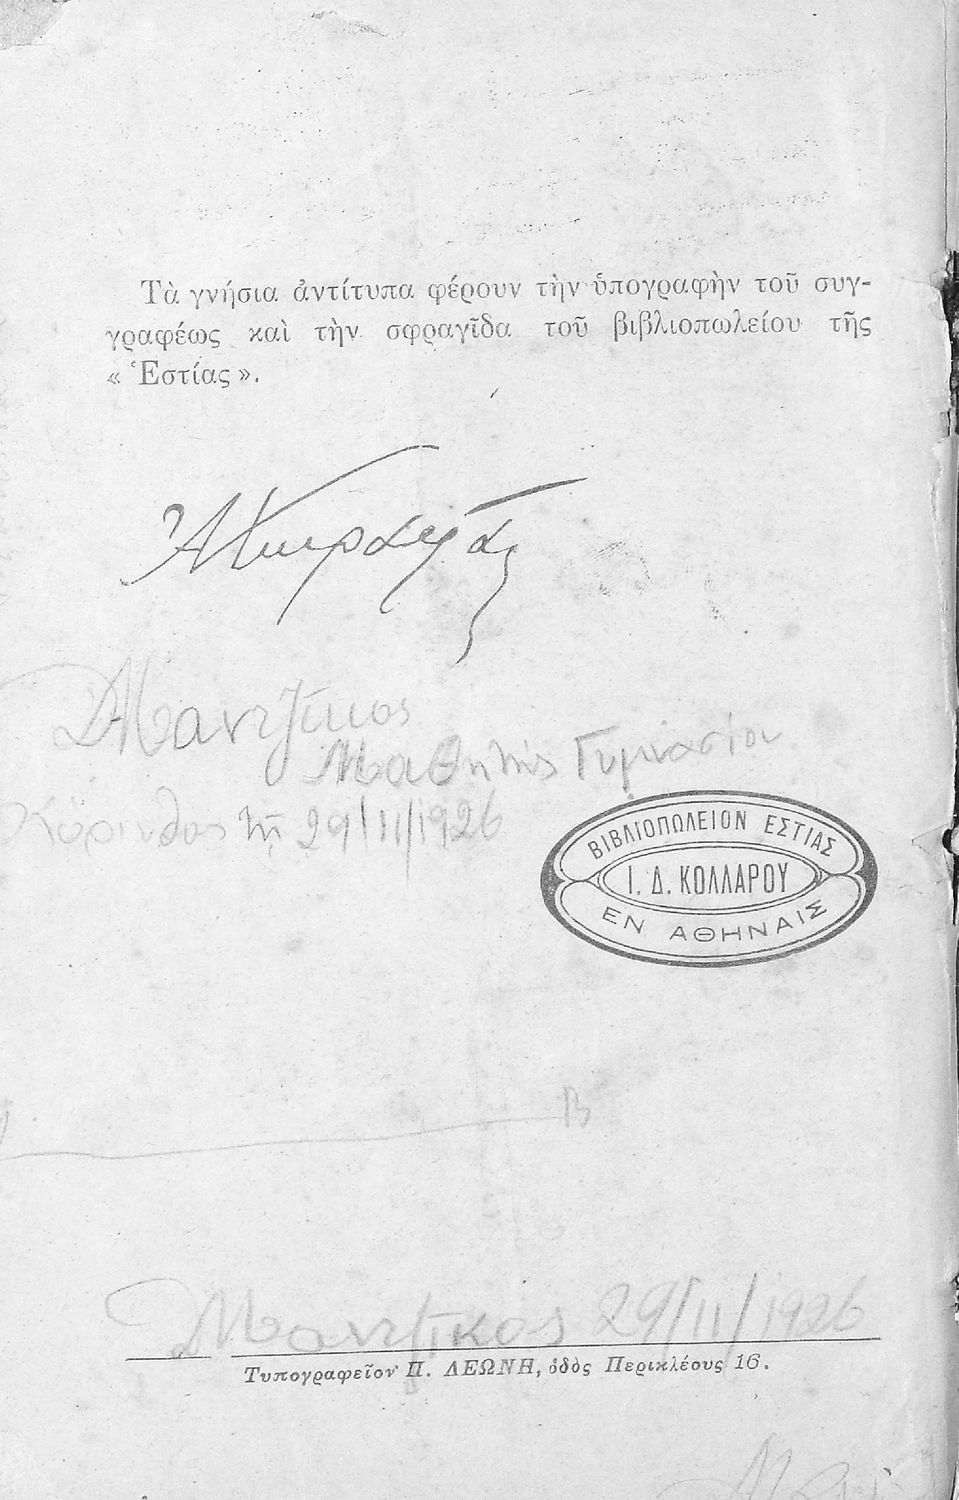 Τὰ γνήσια ἀντίτυπα φέρουν τὴν ὑπογραφὴν τοῦ συγ-
γραφέως καὶ τὴν σφραγῖδα τοῦ βιβλιοπωλείου τῆς
« Ἑστίας ».
Μαντζίκος
Μαθητὴς Γυμνασίου
Κόρινθος τῇ 29/11/1926
ΒΙΒΛΙΟΠΩΛΕΙΟΝ ΕΣΤΙΑΣ
Ι. Δ. ΚΟΛΛΑΡΟΥ
ΕΝ ΑΘΗΝΑΙΣ
B
Μαντζίκος 29/11/1926
Τυπογραφεῖον Π. ΛΕΩΝΗ, ὁδὸς Περικλέους 16.